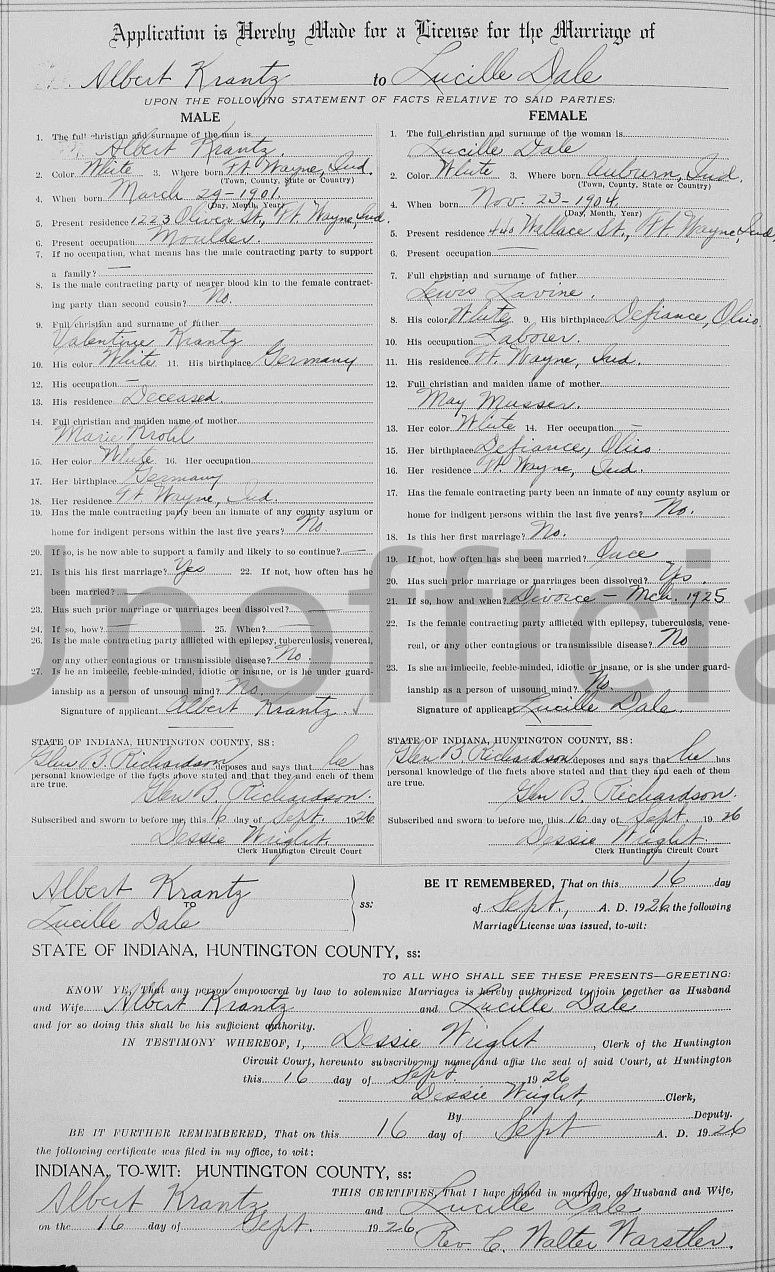 Application is Hereby Made for a License for the Marriage of
Albert Krantz to Lucille Dale
UPON THE FOLLOWING STATEMENT OF FACTS RELATIVE TO SAID PARTIES:
MALE
1. The full christian and surname of the man is
Albert Krantz.
2. Color White 3. Where born Ft. Wayne, Ind.
(Town, County, State or Country)
4. When born March 29-1901.
(Day, Month, Year)
5. Present residence 1223 Oliver St., Ft. Wayne, Ind.
6. Present occupation Moulder.
7. If no occupation, what means has the male contracting party to support
a family? —
8. Is the male contracting party of nearer blood kin to the female contract-
ing party than second cousin? No.
9. Full christian and surname of father
Valentine Krantz
10. His color White 11. His birthplace Germany
12. His occupation —
13. His residence Deceased.
14. Full christian and maiden name of mother
Marie Krohl
15. Her color White 16. Her occupation
17. Her birthplace Germany
18. Her residence Ft. Wayne, Ind.
19. Has the male contracting party been an inmate of any county asylum or
home for indigent persons within the last five years? No
20. If so, is he now able to support a family and likely to so continue? —
21. Is this his first marriage? Yes 22. If not, how often has he
been married? —
23. Has such prior marriage or marriages been dissolved? —
24. If so, how? — 25. When? —
26. Is the male contracting party afflicted with epilepsy, tuberculosis, venereal,
or any other contagious or transmissible disease? No
27. Is he an imbecile, feeble-minded, idiotic or insane, or is he under guard-
ianship as a person of unsound mind? No.
Signature of applicant Albert Krantz.
STATE OF INDIANA, HUNTINGTON COUNTY, SS:
Glen B. Richardson deposes and says that he has
personal knowledge of the facts above stated and that they and each of them
are true.
Glen B. Richardson.
Subscribed and sworn to before me, this 16 day of Sept. 1926
Dessie Wright
Clerk Huntington Circuit Court
FEMALE
1. The full christian and surname of the woman is
Lucille Dale
2. Color White 3. Where born Auburn, Ind.
(Town, County, State or Country)
4. When born Nov. 23-1904.
(Day, Month, Year)
5. Present residence 440 Wallace St., Ft Wayne, Ind.
6. Present occupation
7. Full christian and surname of father
Lewis Lavine.
8. His color White 9. His birthplace Defiance, Ohio
10. His occupation Laborer.
11. His residence Ft. Wayne, Ind.
12. Full christian and maiden name of mother
May Musser.
13. Her color White 14. Her occupation —
15. Her birthplace Defiance, Ohio
16. Her residence Ft. Wayne, Ind.
17. Has the female contracting party been an inmate of any county asylum or
home for indigent persons within the last five years? No.
18. Is this her first marriage? No.
19. If not, how often has she been married? Once
20. Has such prior marriage or marriages been dissolved? Yes.
21. If so, how and when? Divorce - Mch. 1925
22. Is the female contracting party afflicted with epilepsy, tuberculosis, vene-
real, or any other contagious or transmissible disease? No
23. Is she an imbecile, feeble-minded, idiotic or insane, or is she under guard-
ianship as a person of unsound mind? No.
Signature of applicant Lucille Dale.
STATE OF INDIANA, HUNTINGTON COUNTY, SS:
Glen B. Richardson deposes and says that he has
personal knowledge of the facts above stated and that they and each of them
are true.
Glen B. Richardson.
Subscribed and sworn to before me, this 16 day of Sept. 1926
Dessie Wright
Clerk Huntington Circuit Court
Unofficia
Albert Krantz
TO
Lucille Dale
ss:
BE IT REMEMBERED, That on this 16 day
of Sept., A. D. 1926 the following
Marriage License was issued, to-wit:
STATE OF INDIANA, HUNTINGTON COUNTY, ss:
TO ALL WHO SHALL SEE THESE PRESENTS—GREETING:
KNOW YE, That any person empowered by law to solemnize Marriages is hereby authorized to join together as Husband
and Wife Albert Krantz and Lucille Dale
and for so doing this shall be his sufficient authority.
IN TESTIMONY WHEREOF, I, Dessie Wright, Clerk of the Huntington
Circuit Court, hereunto subscribe my name and affix the seal of said Court, at Huntington
this 16 day of Sept. 1926
Dessie Wright, Clerk,
By Deputy.
BE IT FURTHER REMEMBERED, That on this 16 day of Sept A. D. 1926
the following certificate was filed in my office, to wit:
INDIANA, TO-WIT: HUNTINGTON COUNTY, ss:
THIS CERTIFIES, That I have joined in marriage, as Husband and Wife,
Albert Krantz and Lucille Dale
on the 16 day of Sept. 1926
Rev. C. Walter Warstler.